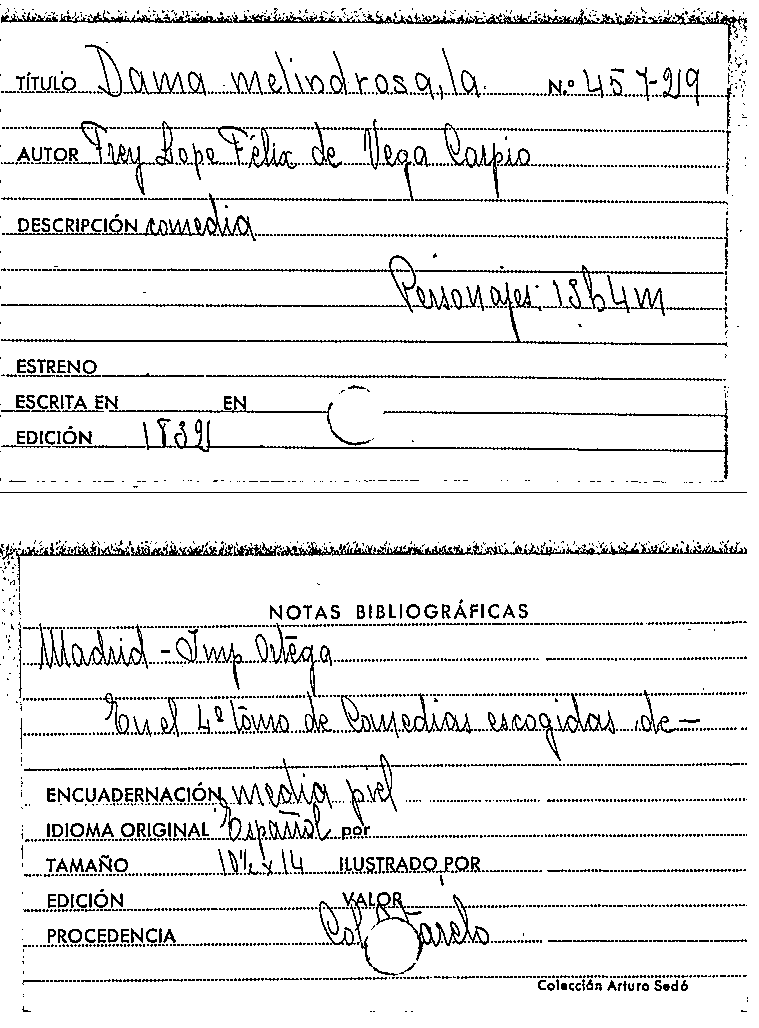 TÍTULO Dama melindrosa, la. N.º 457-29
AUTOR Frey Lope Félix de Vega Carpio
DESCRIPCIÓN comedia
Personajes: 13h4m
ESTRENO
ESCRITA EN EN
EDICIÓN
NOTAS BIBLIOGRÁFICAS
Madrid - Imp Ortega
En el 4º tomo de Comedias escogidas de—
ENCUADERNACIÓN media piel
IDIOMA ORIGINAL Español por
TAMAÑO 10½ x 14 ILUSTRADO POR
EDICIÓN VALOR
PROCEDENCIA Col
Colección Arturo Sedó